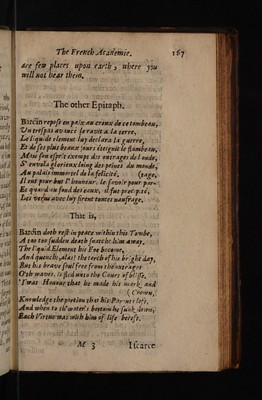 The French Academie. 167
are few places upon earth, where you
will not hear them.
The other Epitaph.
Bardin repose en paix au creux de ce tombeau,
Un trespas avancé le ravit a la terre,
Le liquide element luy declara la guerre,
Et de ses plus beaux jours éteignit le flambeau,
Mais son esprit exempt des outrages de l'eau,
S'envola glorieux loing des peines du monde,
Au palais immortel de la felicité,
Il eut pour but l'honneur, le sçavoir pour par-
(tage,
Et quand au fond des eaux, il fut precipité,
Les vertus avec luy firent toutes naufrage.
That is,
Bardin doth rest in peace within this Tombe,
A too too sudden death snatcht him away.
The liquid Element his Foe became,
And quencht, alas! the torch of his bright day,
But his brave soul free from the outrages
Of the waves, is fled unto the Court of blisse,
'Twas Honour that he made his mark, and
(Crown,
Knowledge the portion that his
And when to th' water's bottom he sunk down,
Each Virtue was with him of life bereft.
M 3 I scarce